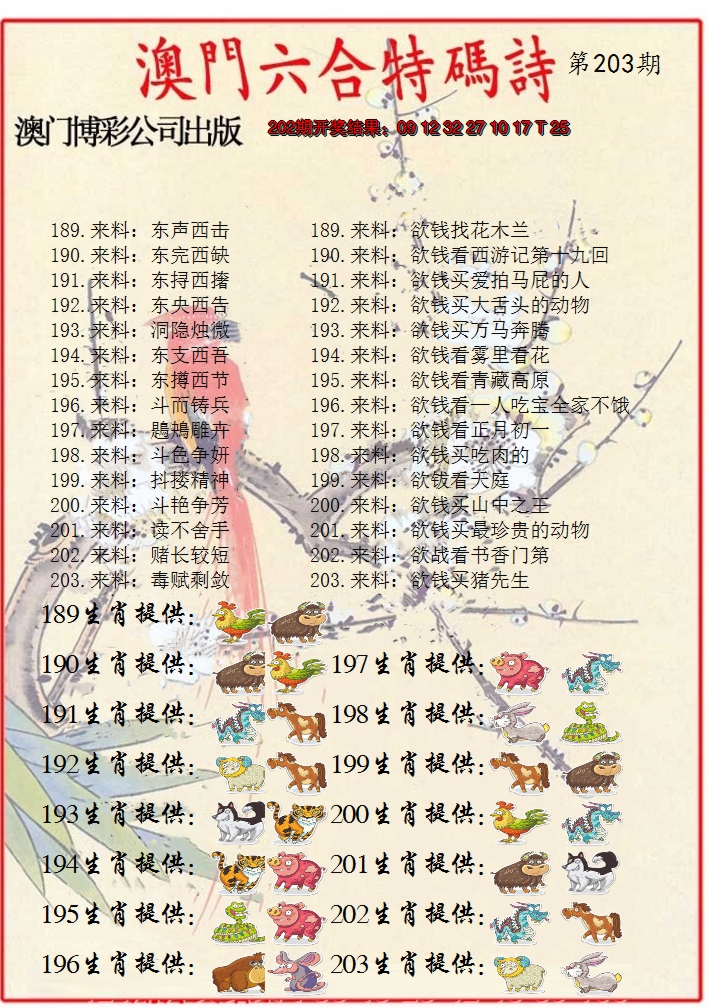 澳門六合特碼詩 第203期
澳门博彩公司出版 202期开奖结果：09 12 32 27 10 17 T 25
189.来料：东声西击 189.来料：欲钱找花木兰
190.来料：东完西缺 190.来料：欲钱看西游记第十九回
191.来料：东挦西撦 191.来料：欲钱买爱拍马屁的人
192.来料：东央西告 192.来料：欲钱买大舌头的动物
193.来料：洞隐烛微 193.来料：欲钱买万马奔腾
194.来料：东支西吾 194.来料：欲钱看雾里看花
195.来料：东撙西节 195.来料：欲钱看青藏高原
196.来料：斗而铸兵 196.来料：欲钱看一人吃宝全家不饿
197.来料：鶗鴂雕卉 197.来料：欲钱看正月初一
198.来料：斗色争妍 198.来料：欲钱买吃肉的
199.来料：抖搂精神 199.来料：欲钱看天庭
200.来料：斗艳争芳 200.来料：欲钱买山中之王
201.来料：读不舍手 201.来料：欲钱买最珍贵的动物
202.来料：赌长较短 202.来料：欲战看书香门第
203.来料：毒赋剩敛 203.来料：欲钱买猪先生
189生肖提供：
190生肖提供： 197生肖提供：
191生肖提供： 198生肖提供：
192生肖提供： 199生肖提供：
193生肖提供： 200生肖提供：
194生肖提供： 201生肖提供：
195生肖提供： 202生肖提供：
196生肖提供： 203生肖提供：